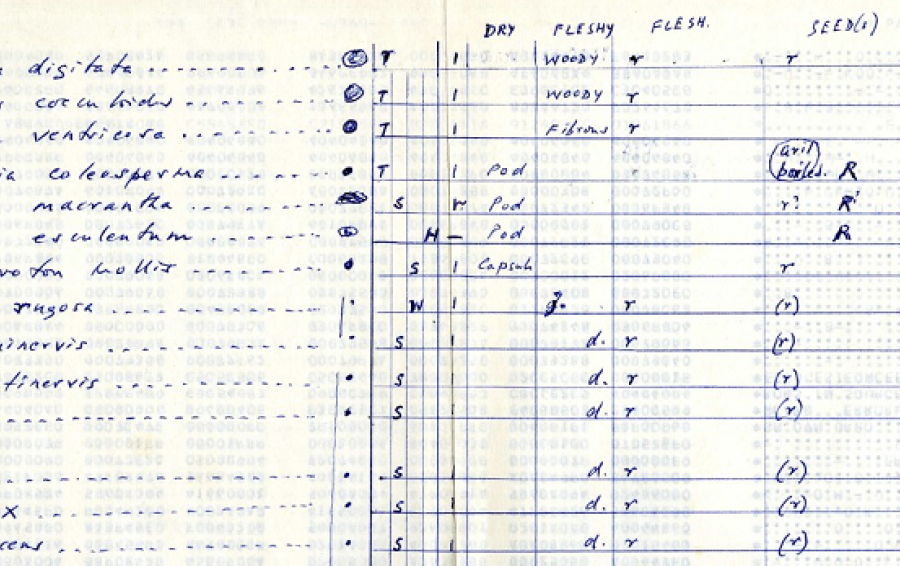 DRY FLESHY FLESH. SEED(S)
digitata T 1 WOODY r r
T 1 WOODY r
ventricosa T 1 Fibrous r
coleosperma T 1 Pod (aril) boiled. R
macrantha S r Pod r? R
esculentum H – Pod R
mollis S 1 Capsule r
rugosa W 1 r (r)
inervis S 1 d. r (r)
tinervis S 1 d. r (r)
S 1 d. r (r)
S 1 d. r (r)
x S 1 d. r (r)
cens S 1 d. r (r)